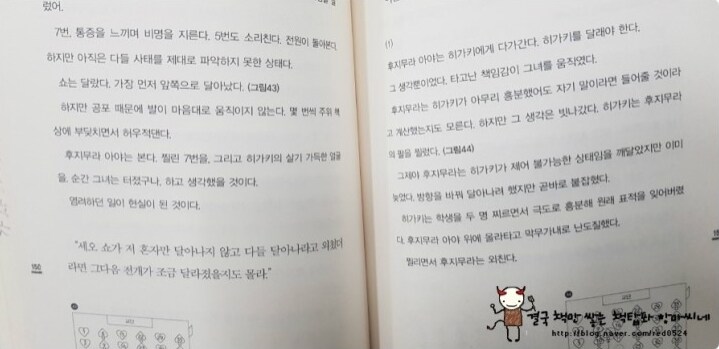 렀어.
7번, 통증을 느끼며 비명을 지른다. 5번도 소리친다. 전원이 돌아본다.
하지만 아직은 다들 사태를 제대로 파악하지 못한 상태다.
쇼는 달랐다. 가장 먼저 앞쪽으로 달아났다. (그림43)
하지만 공포 때문에 발이 마음대로 움직이지 않는다. 몇 번씩 주위 책
상에 부딪치면서 허우적댄다.
후지무라 아야는 본다. 찔린 7번을, 그리고 히가키의 살기 가득한 얼굴
을. 순간 그녀는 터졌구나, 하고 생각했을 것이다.
염려하던 일이 현실이 된 것이다.
"세오 쇼가 저 혼자만 달아나지 않고 다들 달아나라고 외쳤더
라면 그다음 전개가 조금 달라졌을지도 몰라."
150
(1)
후지무라 아야는 히가키에게 다가간다. 히가키를 달래야 한다.
그 생각뿐이었다. 타고난 책임감이 그녀를 움직였다.
후지무라는 히가키가 아무리 흥분했어도 자기 말이라면 들어줄 것이라
고 계산했는지도 모른다. 하지만 그 생각은 빗나갔다. 히가키는 후지무라
의 팔을 찔렀다. (그림44)
그제야 후지무라는 히가키가 제어 불가능한 상태임을 깨달았지만 이미
늦었다. 방향을 바꿔 달아나려 했지만 곧바로 붙잡혔다.
히가키는 학생을 두 명 찌르면서 극도로 흥분해 원래 표적을 잊어버렸
다. 후지무라 아야 위에 올라타고 막무가내로 난도질했다.
찔리면서 후지무라는 외친다.
결국 책만 쌓는 책탑파 앙마씨네
http://blog.naver.com/red0524